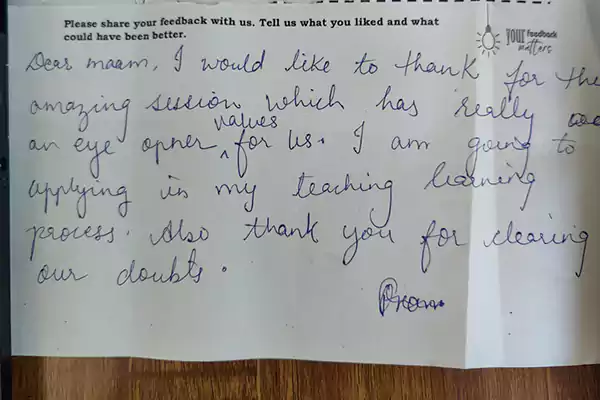 Please share your feedback with us. Tell us what you liked and what
could have been better.
YOUR feedback
matters
Dear maam, I would like to thank for the
amazing session which has really
values
an eye opner for us. I am going to
applying in my teaching learning
process. Also thank you for clearing
our doubts.